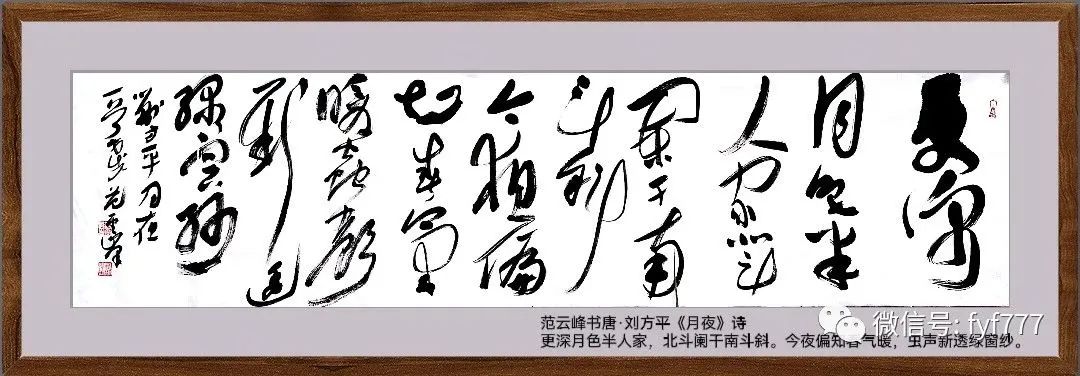 更深
月色半
人家北斗
闌干南
斗斜
今夜偏
知春氣
暖蟲聲
新透
綠窗紗
劉方平月夜
范雲峰
范云峰书唐·刘方平《月夜》诗
更深月色半人家，北斗阑干南斗斜。今夜偏知春气暖，虫声新透绿窗纱。
微信号: fyf777